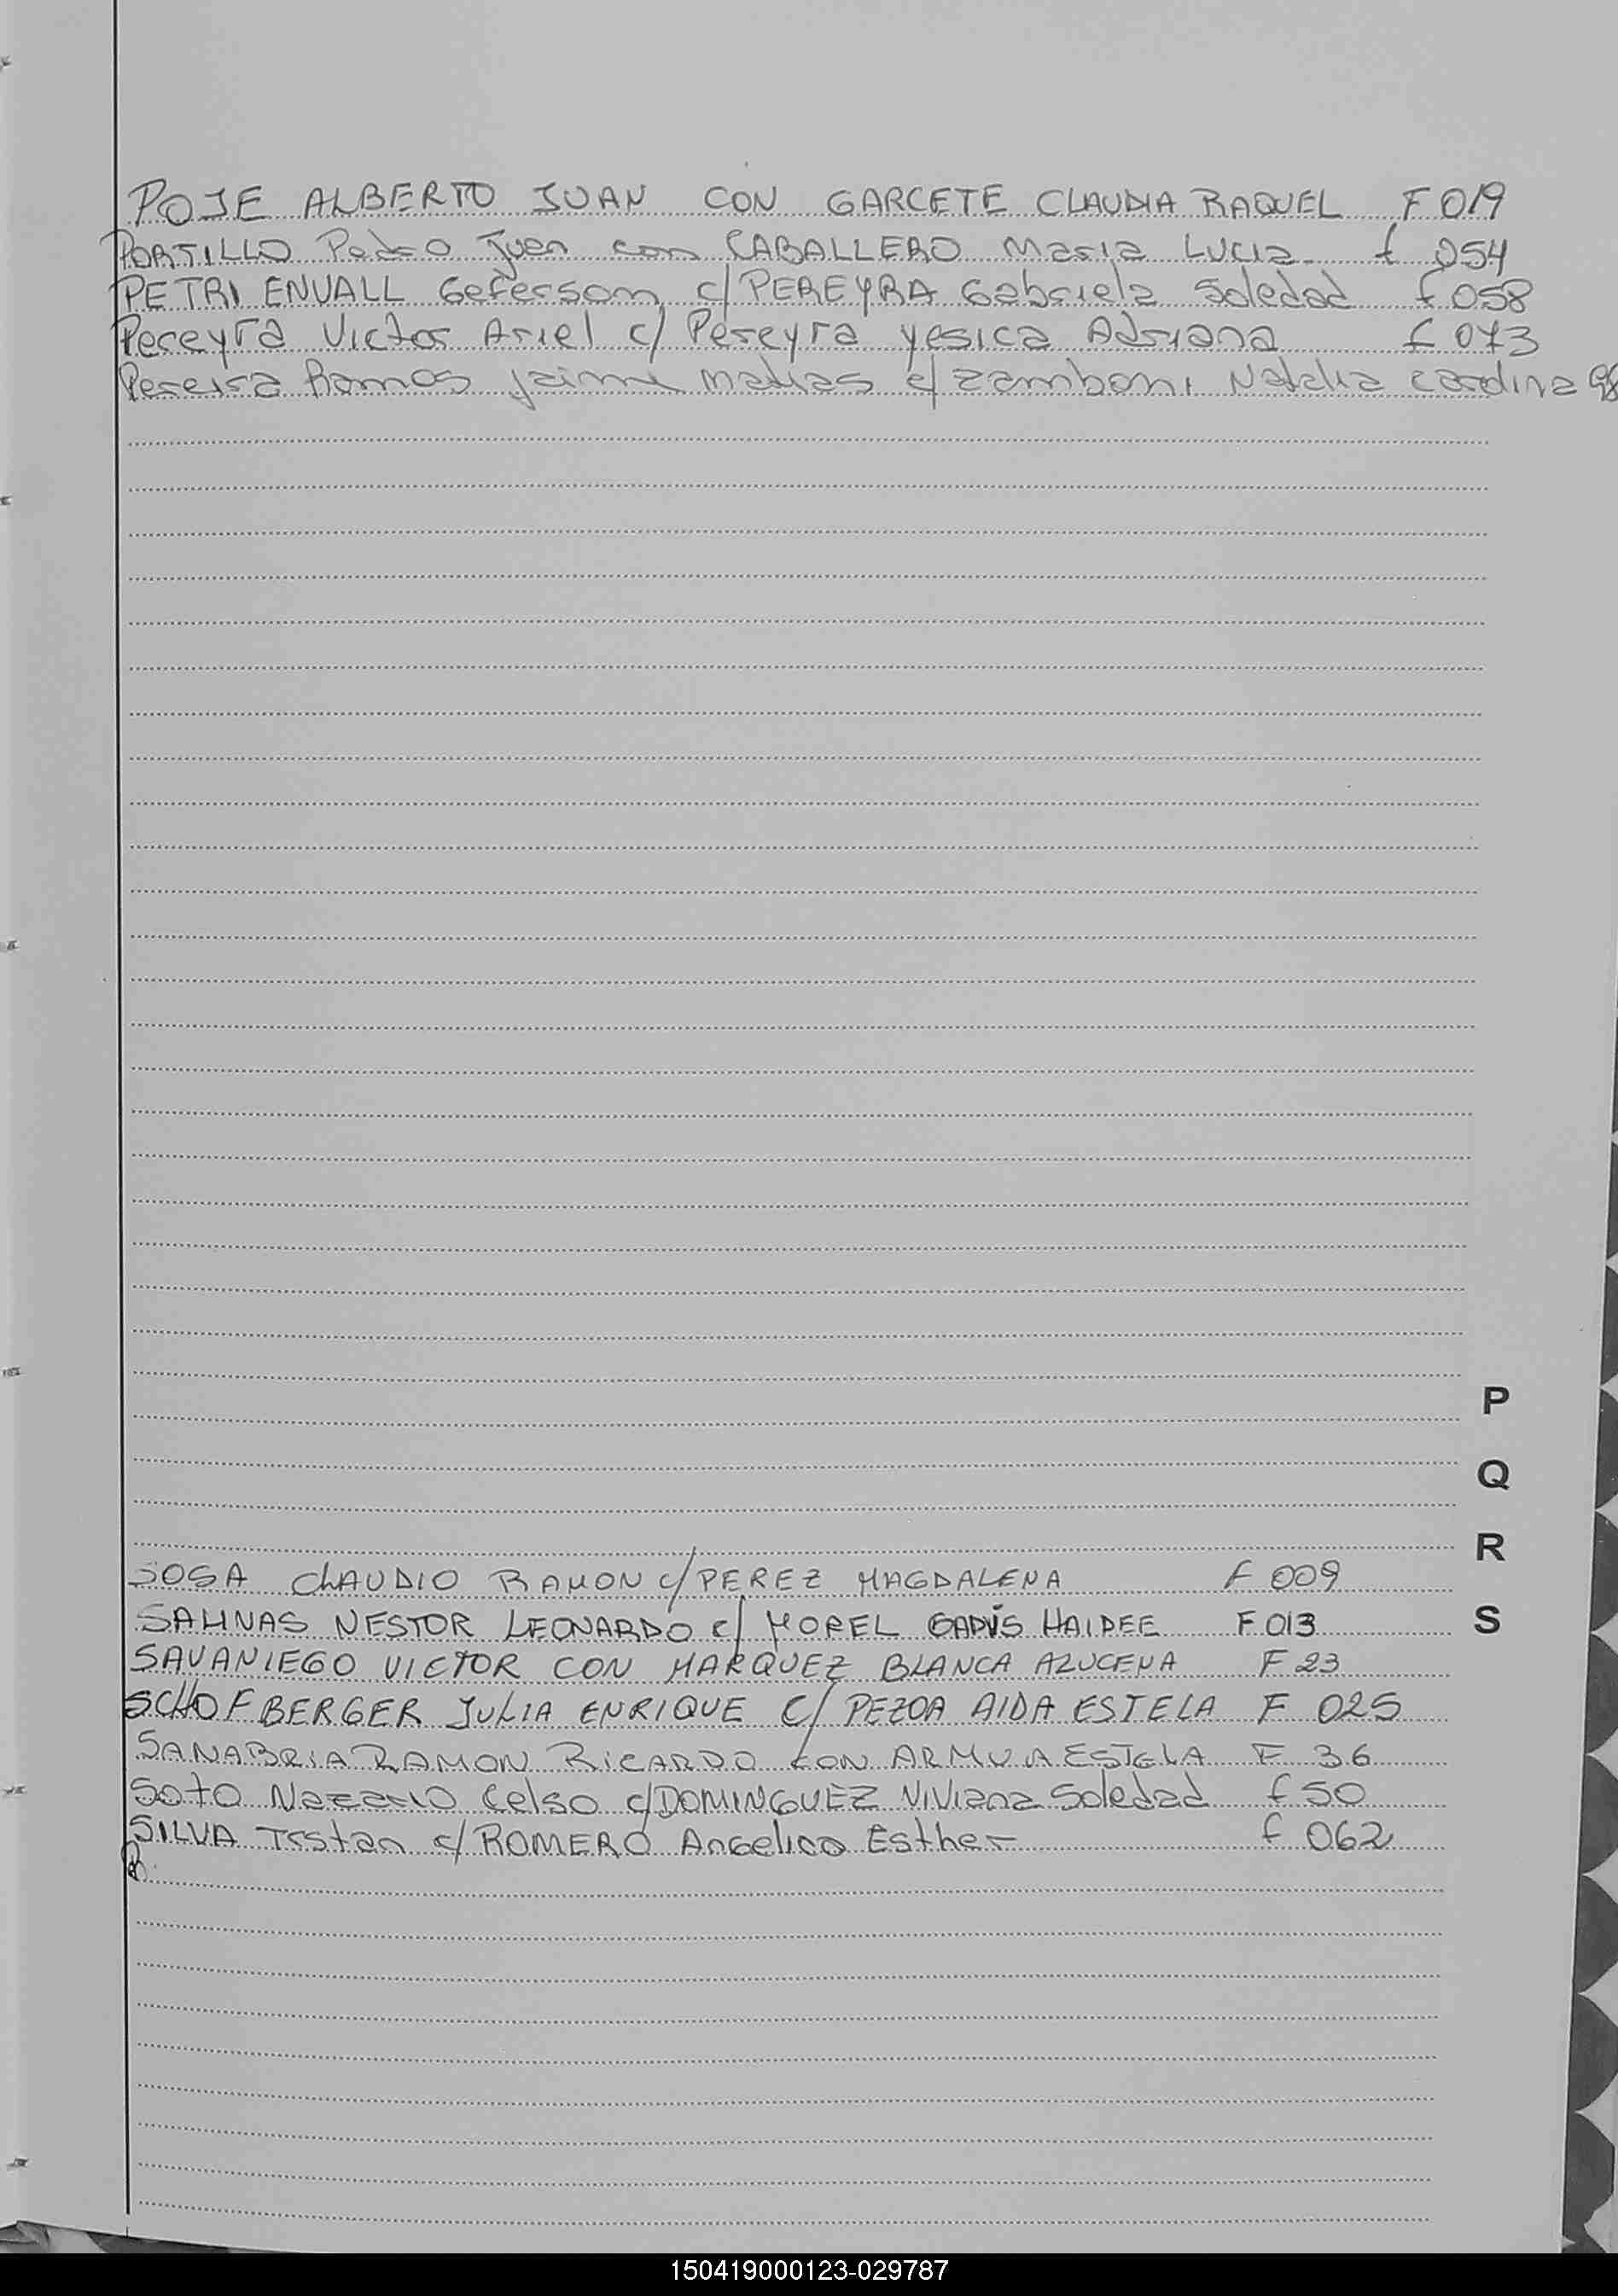 POJE ALBERTO JUAN CON GARCETE CLAUDIA RAQUEL F 019
PORTILLO Pedro Juan con CABALLERO Maria Lucia f 054
PETRI ENVALL Gefersom c/ PEREYRA Gabriela Soledad f 058
Pereyra Victor Ariel c/ Pereyra yesica Adriana f 073
Pereira Ramos jaime Matias c/ zamboni Natalia carolina 98
P
Q
R
SOSA CLAUDIO RAMON c/ PEREZ MAGDALENA F 009
SALINAS NESTOR LEONARDO c/ MOREL HAIDEE F 013
S
SAVANIEGO VICTOR CON MARQUEZ BLANCA AZUCENA F 23
SCHOFBERGER JULIA ENRIQUE C/ PEZOA AIDA ESTELA F 025
SANABRIA RAMON RICARDO CON ARMUA ESTELA F 36
SOTO Nazario Celso c/ DOMINGUEZ Viviana Soledad f 50
SILVA Tristan c/ ROMERO Angelica Esther f 062
150419000123-029787